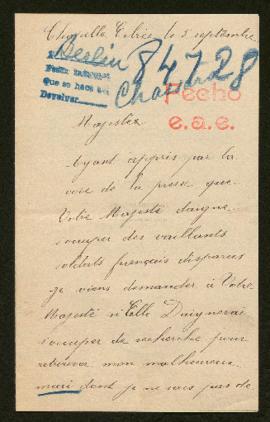 le 5 septembre
Berlin
84728
Fecho
e.a.e.
Majesté
Ayant appris par la
voie de la presse que
Votre Majesté daigne
s'occuper des vaillants
soldats français disparus
je viens demander à Votre
Majesté si Elle Daignerai
s'occuper de recherche pour
retrouver mon malheureux
mari dont je ne sais pas de